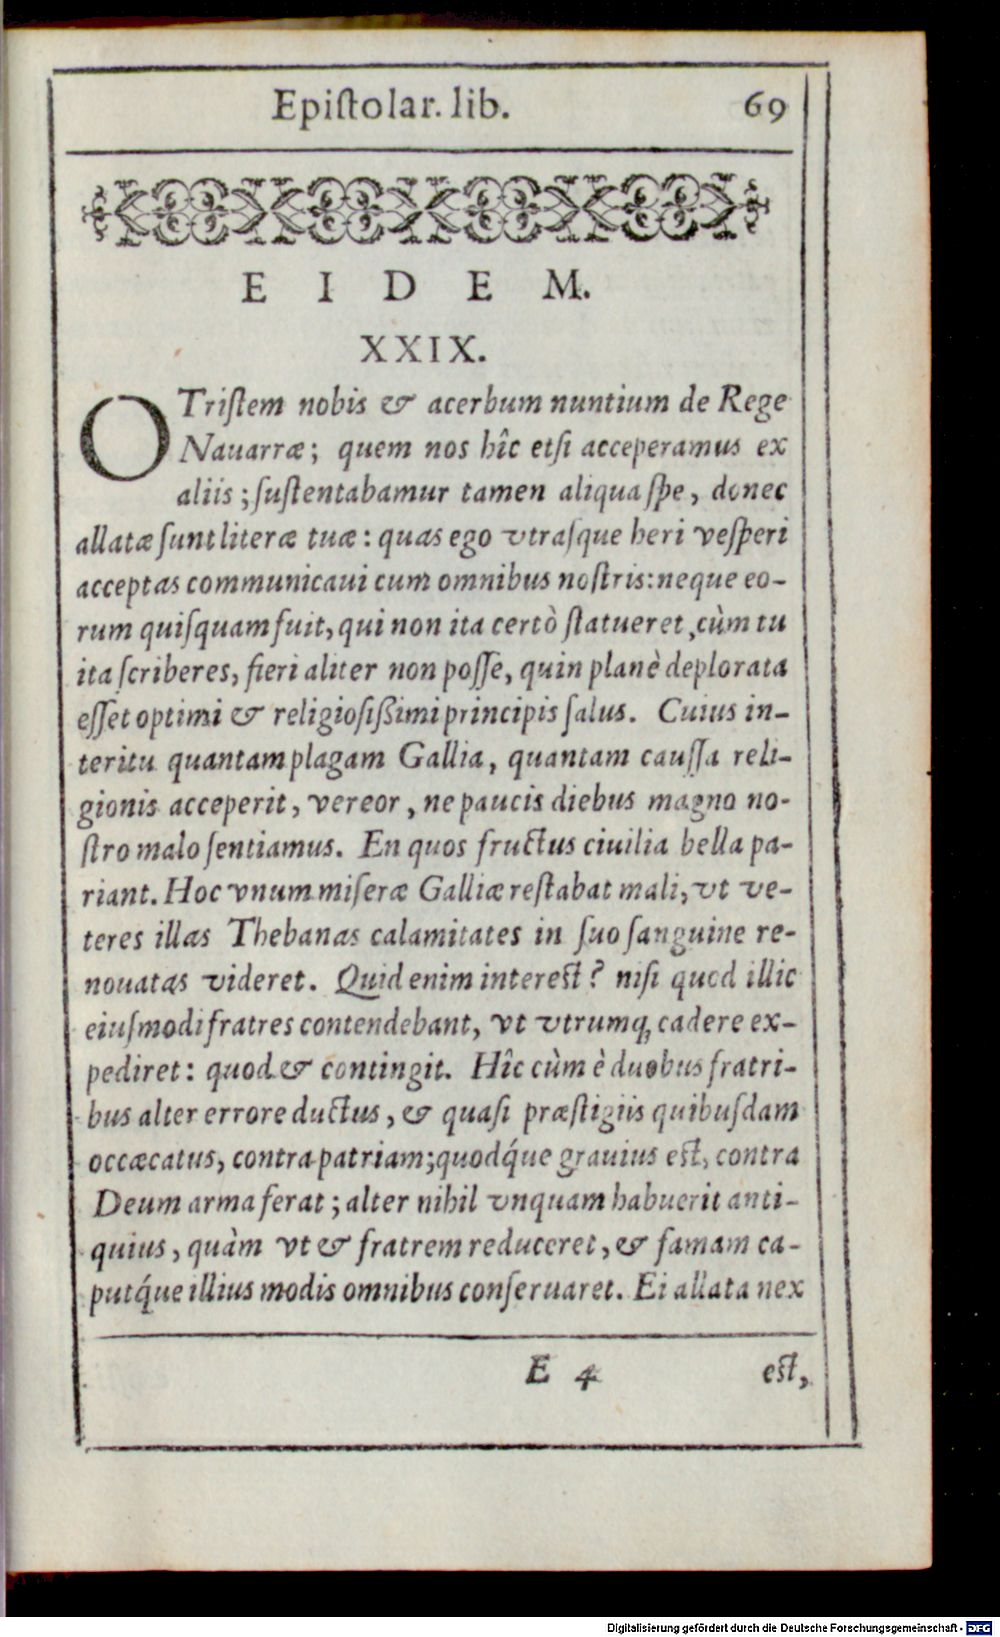 Epiſtolar. lib. 69
E I D E M.
XXIX.
O Triſtem nobis & acerbum nuntium de Rege
Nauarræ; quem nos hîc etſi acceperamus ex
aliis; ſuſtentabamur tamen aliqua ſpe, donec
allatæ ſunt literæ tuæ: quas ego vtraſque heri veſperi
acceptas communicaui cum omnibus noſtris: neque eo-
rum quiſquam fuit, qui non ita certò ſtatueret, cùm tu
ita ſcriberes, fieri aliter non poſſe, quin planè deplorata
eſſet optimi & religioſiſßimi principis ſalus. Cuius in-
teritu quantam plagam Gallia, quantam cauſſa reli-
gionis acceperit, vereor, ne paucis diebus magno no-
ſtro malo ſentiamus. En quos fructus ciuilia bella pa-
riant. Hoc vnum miſeræ Galliæ reſtabat mali, vt ve-
teres illas Thebanas calamitates in ſuo ſanguine re-
nouatas videret. Quid enim intereſt? niſi quod illic
eiuſmodi fratres contendebant, vt vtrumq; cadere ex-
pediret: quod & contingit. Hîc cùm è duobus fratri-
bus alter errore ductus, & quaſi præſtigiis quibuſdam
occæcatus, contra patriam; quodq́ue grauius eſt, contra
Deum arma ferat; alter nihil vnquam habuerit anti-
quius, quàm vt & fratrem reduceret, & famam ca-
putq́ue illius modis omnibus conſeruaret. Ei allata nex
E 4 eſt,
Digitalisierung gefördert durch die Deutsche Forschungsgemeinschaft - DFG